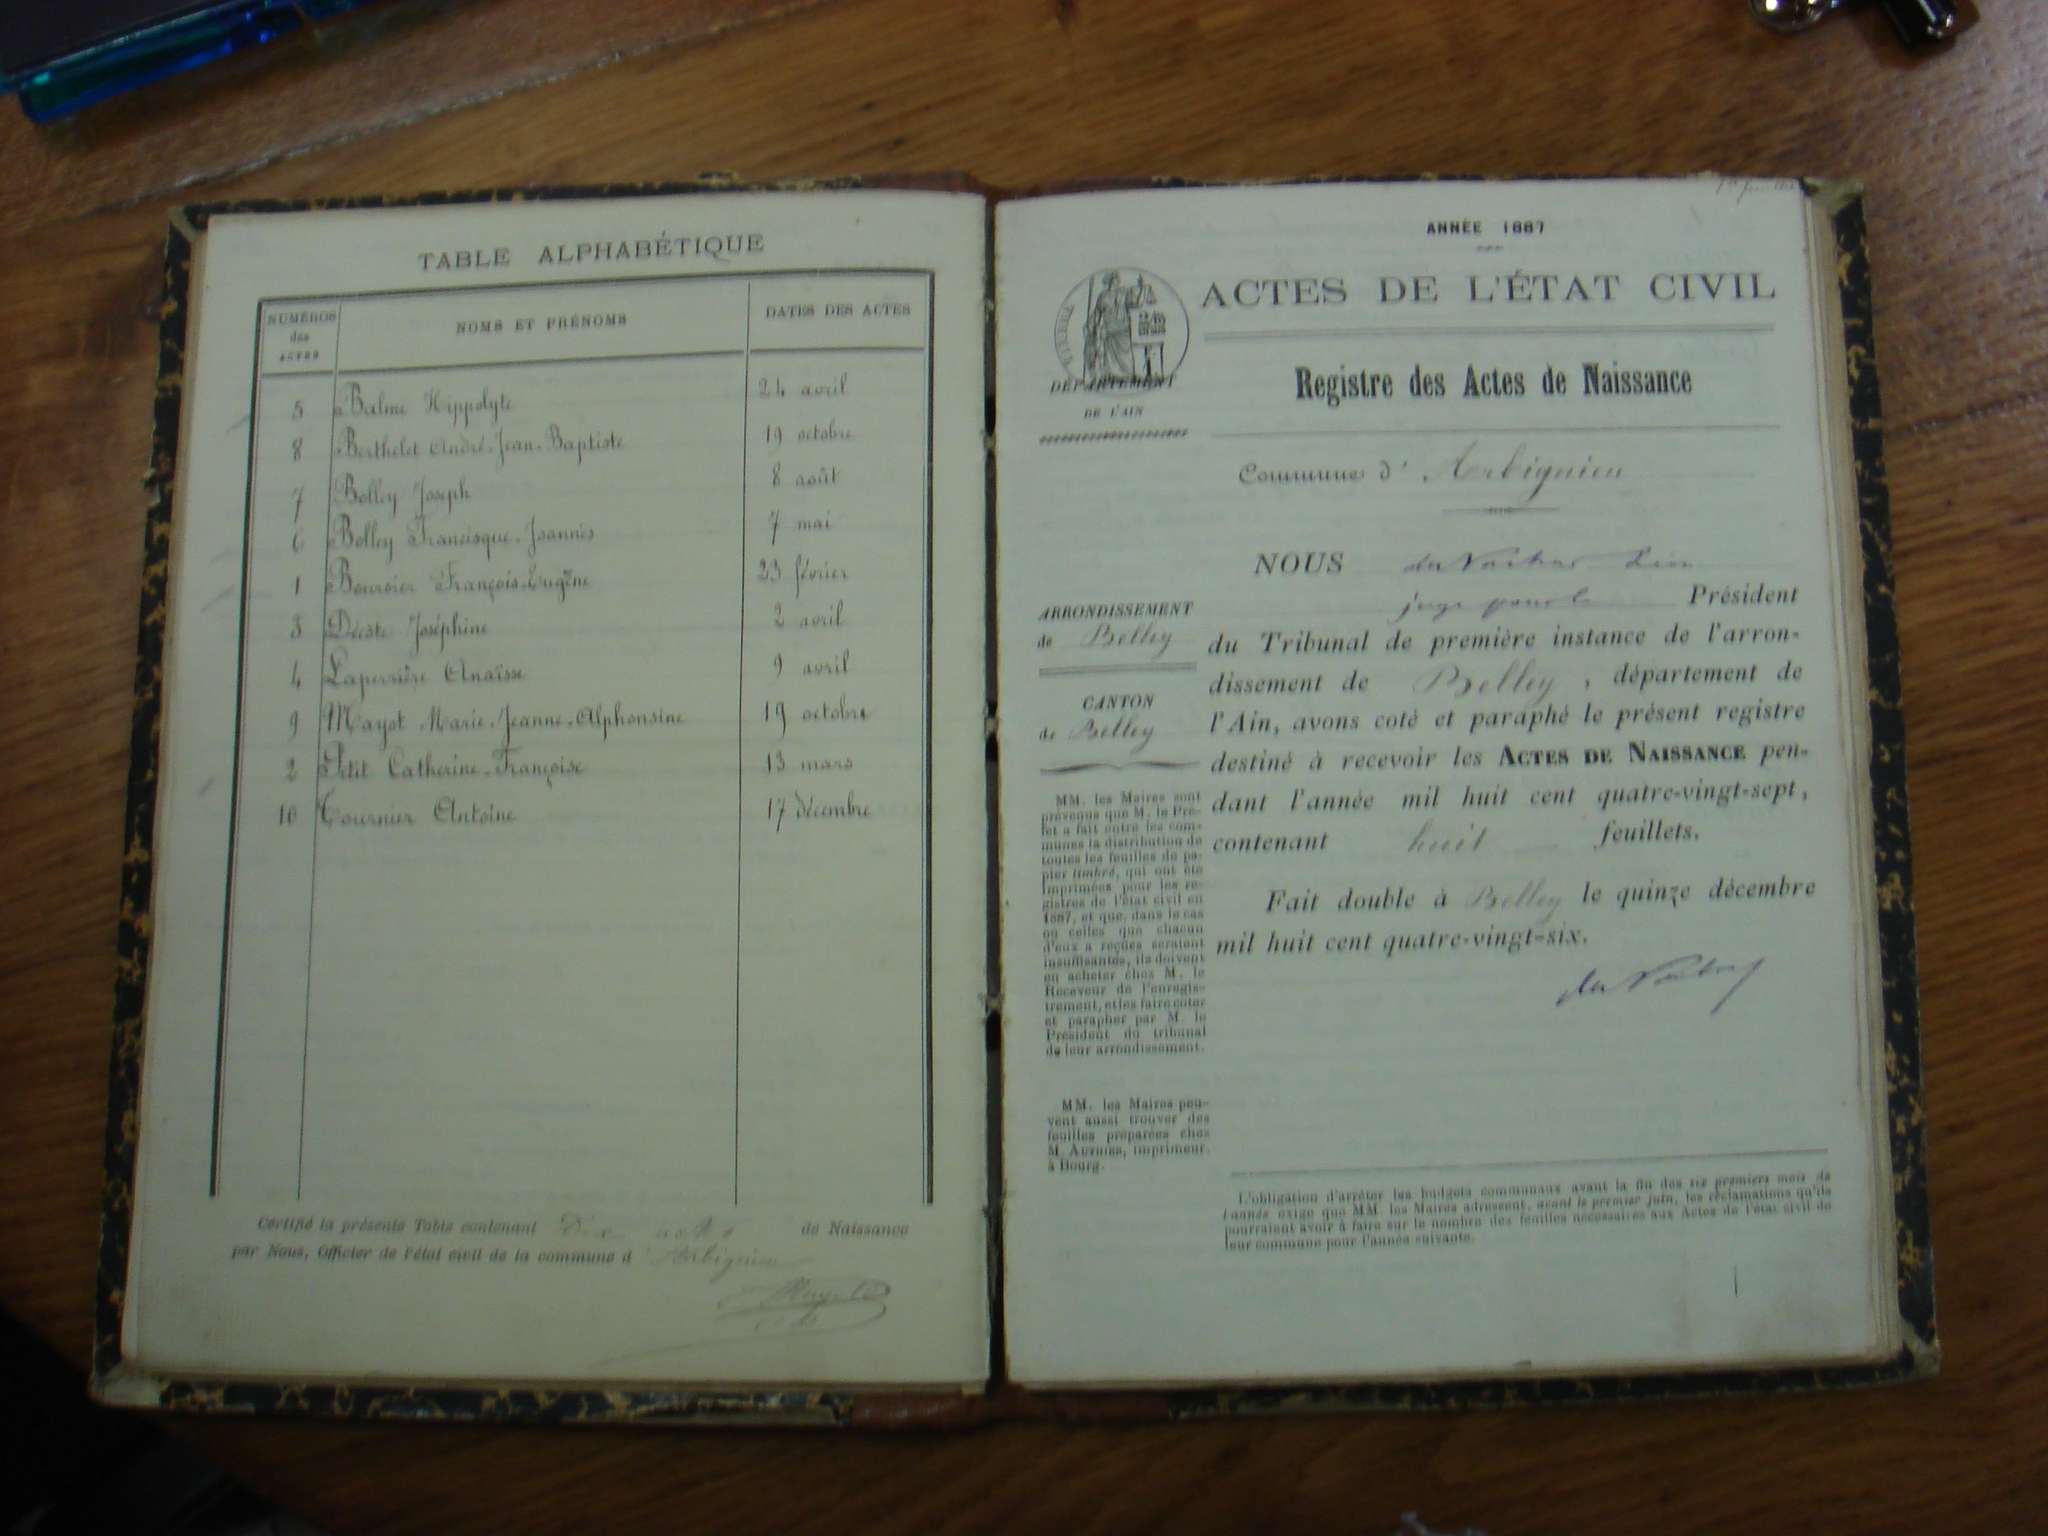 TABLE ALPHABÉTIQUE
NUMÉROS des ACTES
NOMS ET PRÉNOMS
DATES DES ACTES
5 Balme Hippolyte 24 avril
8 Berthelet André-Jean-Baptiste 19 octobre
7 Bolley Joseph 8 août
6 Bolley Francisque-Joannès 7 mai
1 Boursier François-Eugène 23 février
3 Décote Joséphine 2 avril
4 Laperrière Anaïsse 9 avril
9 Mayot Marie-Jeanne-Alphonsine 19 octobre
2 Petit Catherine-Françoise 13 mars
10 Tournier Antoine 17 décembre
Certifié la présente Table contenant Dix actes de Naissance
par Nous, Officier de l'état civil de la commune d'Arbignieu
ANNÉE 1887
ACTES DE L'ÉTAT CIVIL
DÉPARTEMENT
DE L'AIN
Registre des Actes de Naissance
Commune d' Arbignieu
ARRONDISSEMENT
de Belley
CANTON
de Belley
MM. les Maires sont
prévenus que M. le Pré-
fet a fait entre les com-
munes la distribution de
toutes les feuilles de pa-
pier timbré, qui ont été
imprimées pour les re-
gistres de l'état civil en
1887, et que, dans le cas
où celles que chacun
d'eux a reçues seraient
insuffisantes, ils doivent
en acheter chez M. le
Receveur de l'enregis-
trement, et les faire coter
et parapher par M. le
Président du tribunal
de leur arrondissement.
MM. les Maires peu-
vent aussi trouver des
feuilles préparées chez
M. imprimeur
à Bourg.
NOUS
juge pour le Président
du Tribunal de première instance de l'arron-
dissement de Belley, département de
l'Ain, avons coté et paraphé le présent registre
destiné à recevoir les ACTES DE NAISSANCE pen-
dant l'année mil huit cent quatre-vingt-sept,
contenant huit feuillets.
Fait double à Belley le quinze décembre
mil huit cent quatre-vingt-six.
L'obligation d'arrêter les budgets communaux avant la fin des six premiers mois de
l'année exige que MM. les Maires adressent, avant le premier juin, les réclamations qu'ils
pourraient avoir à faire sur le nombre des feuilles nécessaires aux Actes de l'état civil de
leur commune pour l'année suivante.